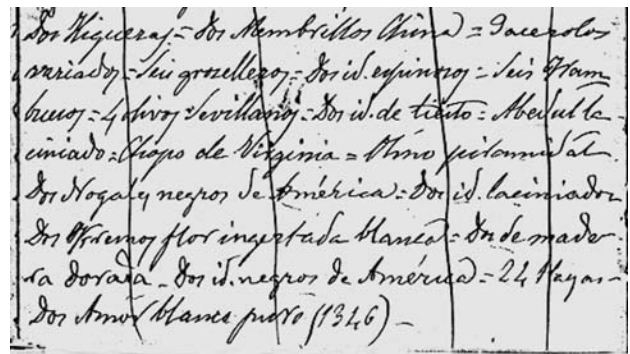 Dos Higueras = dos Membrillos China = Dacerolos
variados = Seis groselleros = Dos id. espinosos = Seis Fram
buesos = 4 olivos Sevillanos = Dos id. de tiesto = Abedul la-
ciniado = Chopo de Virginia = Olmo piramidal
Dos Nogales negros de América = Dos id. laciniados
Dos Fresnos flor ingertada blanca = Dos de made-
ra dorada - Dos id. negros de América = 24 Hayas -
Dos Amor blanco puro (1346) -